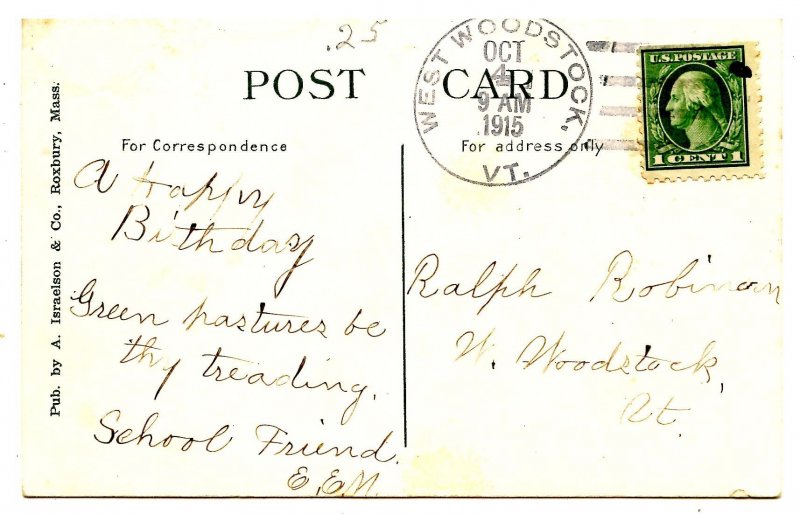 .25
POST CARD
For Correspondence
For address only
WEST WOODSTOCK, VT.
OCT
4
9 AM
1915
U.S. POSTAGE
1 CENT 1
Pub. by A. Israelson & Co., Roxbury, Mass.
A Happy
Birthday
Green pastures be
thy treading.
School Friend.
E.E.M.
Ralph Robinson
W. Woodstock,
Vt.